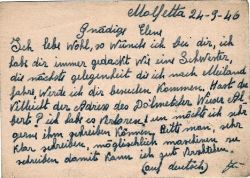 Molfetta 24-9-46
Gnädige Elena
Ich lebe Wohl, so Wünsch ich bei dir, ich
habe dir immer gedacht Wie eine Schwester,
die nächste gelegenheit die ich nach Meiland
fahre, Werde ich dir besuchen Kommen, Hast du
Villeicht der Adress des Dolmetscher
Albert P ich habe es Verloren, und möcht ich sehr
gerne ihm schreiben Können, Bitte man, sehr
Klar schreiben, möglichlich maschinen zu
schreiben damit Kann ich gut Verstehen.
(auf deutsch)